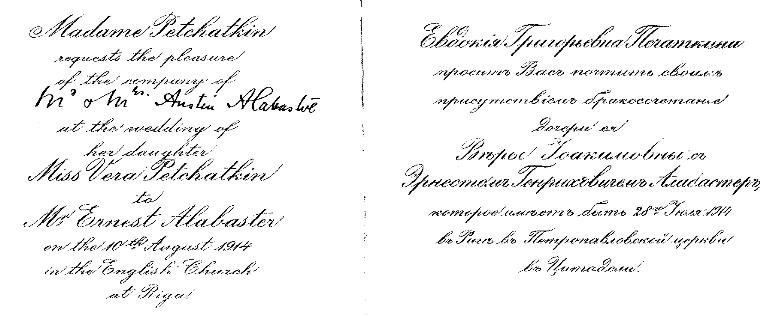 Madame Petchatkin
requests the pleasure
of the company of
Mr & Mrs. Austin Alabaster
at the wedding of
her daughter
Miss Vera Petchatkin
to
Mr Ernest Alabaster
on the 10th August 1914
in the English Church
at Riga
Евдокія Григорьевна Печаткина
проситъ Васъ почтить своимъ
присутствіемъ бракосочетаніе
дочери ея
Вѣры Іоакимовны съ
Эрнестомъ Генриховичемъ Алабастеръ,
которое имѣетъ быть 28го Іюля 1914
въ Ригѣ въ Петропавловской церкви
въ Цитадели.